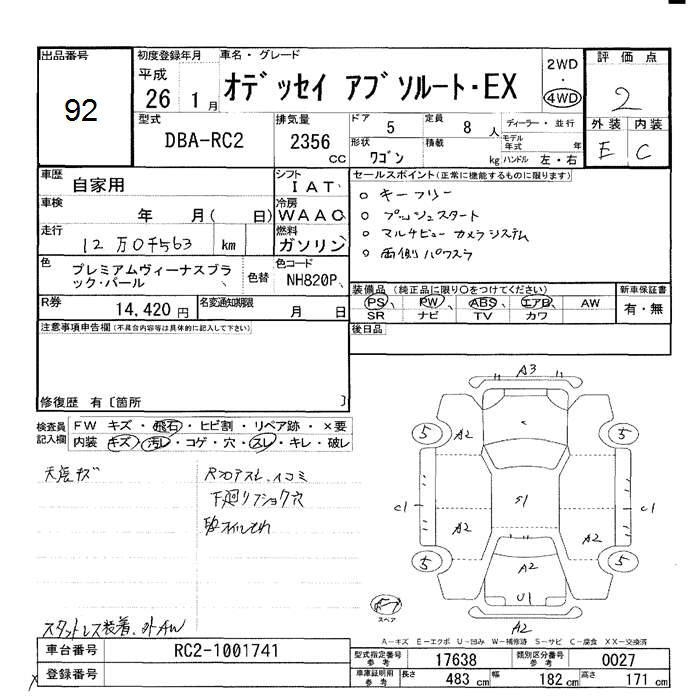 出品番号
92
初度登録年月
平成
26 1月
車名・グレード
オデッセイ アブソルート・EX
2WD
・
4WD
評価点
2
外装 内装
E C
型式
DBA-RC2
排気量
2356
cc
ドア
5
定員
8 人
形状
ワゴン
積載
kg
ディーラー・並行
モデル年式 年
ハンドル 左・右
車歴
自家用
シフト
IAT
車検
年 月( 日)
冷房
WAAC
走行
12万0千563 km
燃料
ガソリン
色
プレミアムヴィーナスブラック・パール
色替
色コード
NH820P
R券
14,420円
名変通知期限
月 日
セールスポイント(正常に機能するものに限ります)
○ キーフリー
○ プッシュスタート
○ マルチビューカメラシステム
○ 両側パワスラ
装備品(純正品に限り○をつけてください)
PS PW ABS エアB AW
SR ナビ TV カワ
新車保証書
有・無
後日品
注意事項申告欄(不具合内容等は具体的に記入して下さい)
修復歴 有〔箇所 〕
検査員記入欄
FW キズ・飛石・ヒビ割・リペア跡・×要
内装 キズ・汚レ・コゲ・穴・スレ・キレ・破レ
天張キズ
下廻リアショク穴
スタットレス装着、
A3
5 A2 A2 5
C1 S1 C1
A2 A2
5 A2 5
U1
A2
スペア
A-キズ E-エクボ U-凹み W-補修跡 S-サビ C-腐食 XX-交換済
車台番号
RC2-1001741
登録番号
型式指定番号
参考
17638
類別区分番号
参考
0027
車庫証明用
参考
長さ 483 cm
幅 182 cm
高さ 171 cm